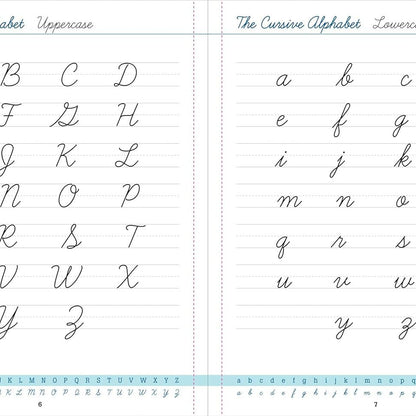 abet Uppercase
B C D
F G H
J K L
N O P
R S T
V W X
Y Z
K L M N O P Q R S T U V W X Y Z
K L M N O P Q R S T U V W X Y Z
6
The Cursive Alphabet Lowerca
a b c
e f g
i j k
m n o
q r s
u v w
y z
a b c d e f g h i j k l m n o p q
a b c d e f g h i j k l m n o p q
7